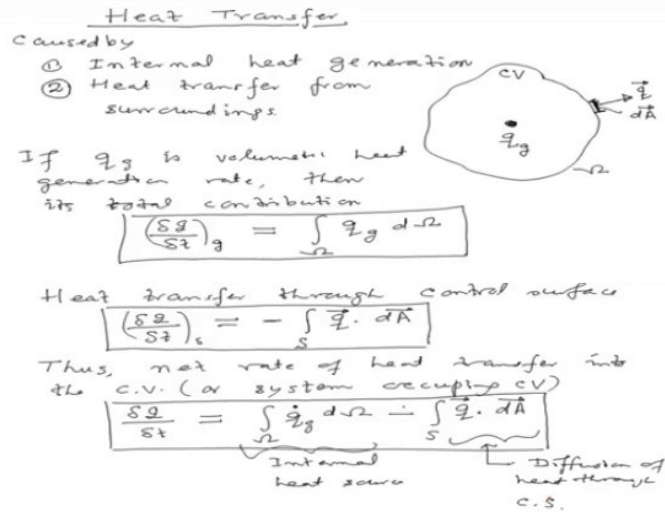 Heat Transfer
Caused by
① Internal heat generation
② Heat transfer from
surroundings.
CV
q⃗
dA⃗
q_g
Ω
If q_g is volumetric heat
generation rate, then
its total contribution
(δQ/δt)_g = ∫_Ω q_g dΩ
Heat transfer through control surface
(δQ/δt)_s = - ∫_S q⃗ . dA⃗
Thus, net rate of heat transfer into
the C.V. (or system occupying CV)
δQ/δt = ∫_Ω q̇_g dΩ - ∫_S q⃗ . dA⃗
Internal
heat source
Diffusion of
heat through
C.S.